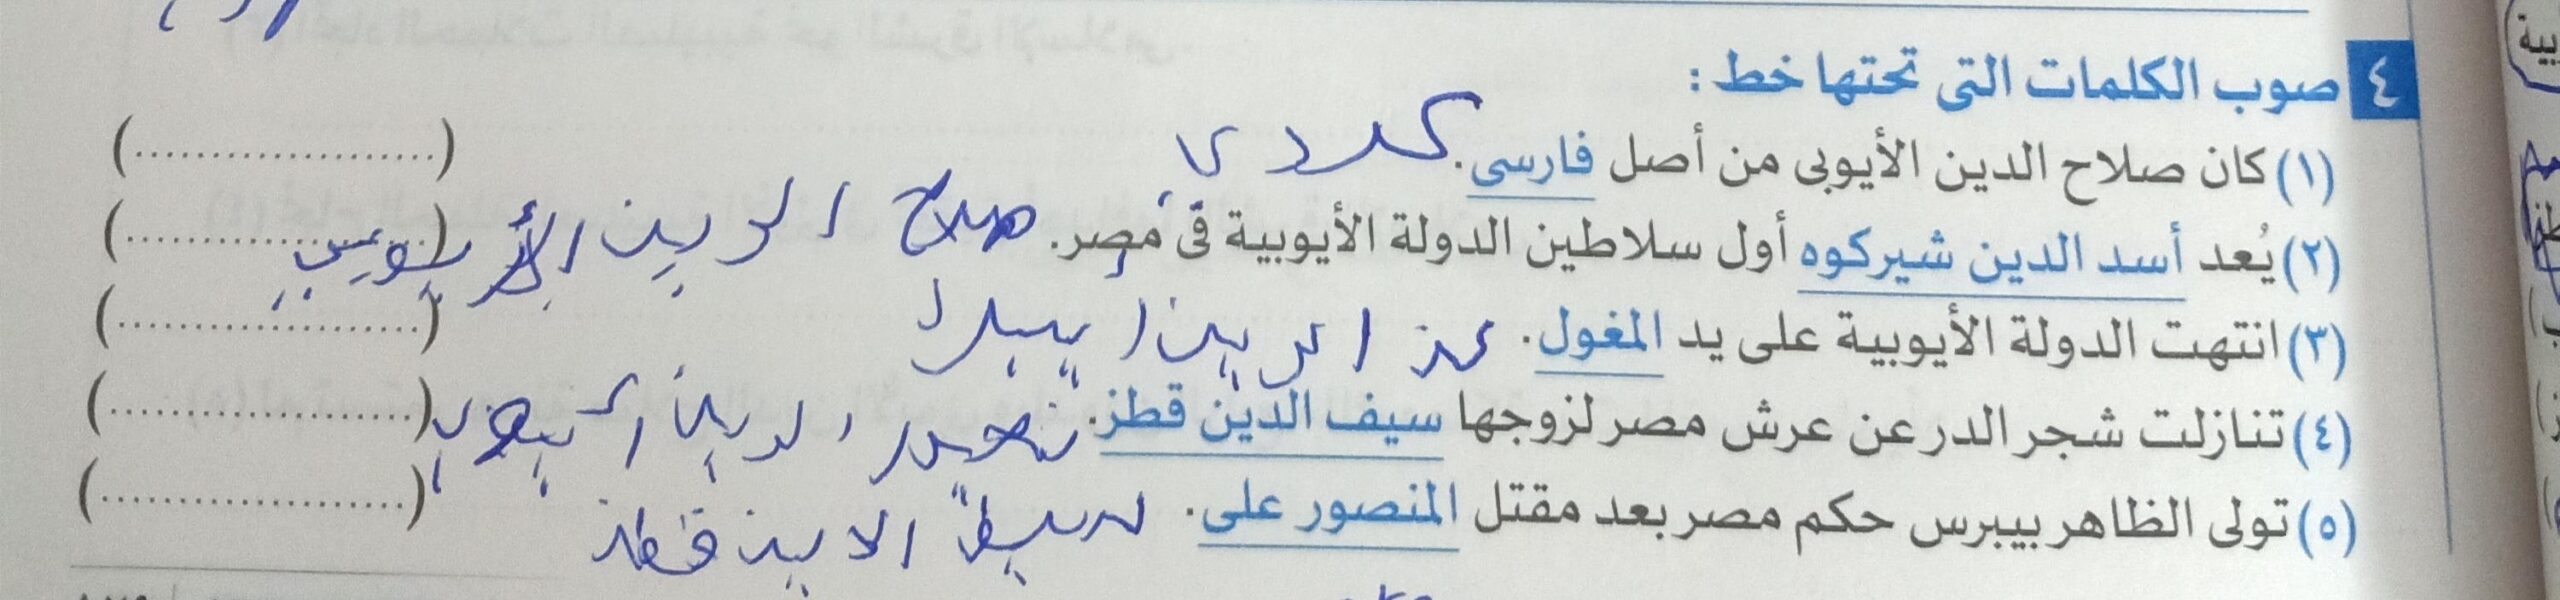 ٤ صوب الكلمات التى تحتها خط :
(١) كان صلاح الدين الأيوبى من أصل فارسى. كردى (....................)
(٢) يُعد أسد الدين شيركوه أول سلاطين الدولة الأيوبية فى مصر. صلاح الدين الأيوبى (....................)
(٣) انتهت الدولة الأيوبية على يد المغول. عز الدين ايبك (....................)
(٤) تنازلت شجر الدر عن عرش مصر لزوجها سيف الدين قطز. الدين (....................)
(٥) تولى الظاهر بيبرس حكم مصر بعد مقتل المنصور على. سيف الدين قطز (....................)
بية